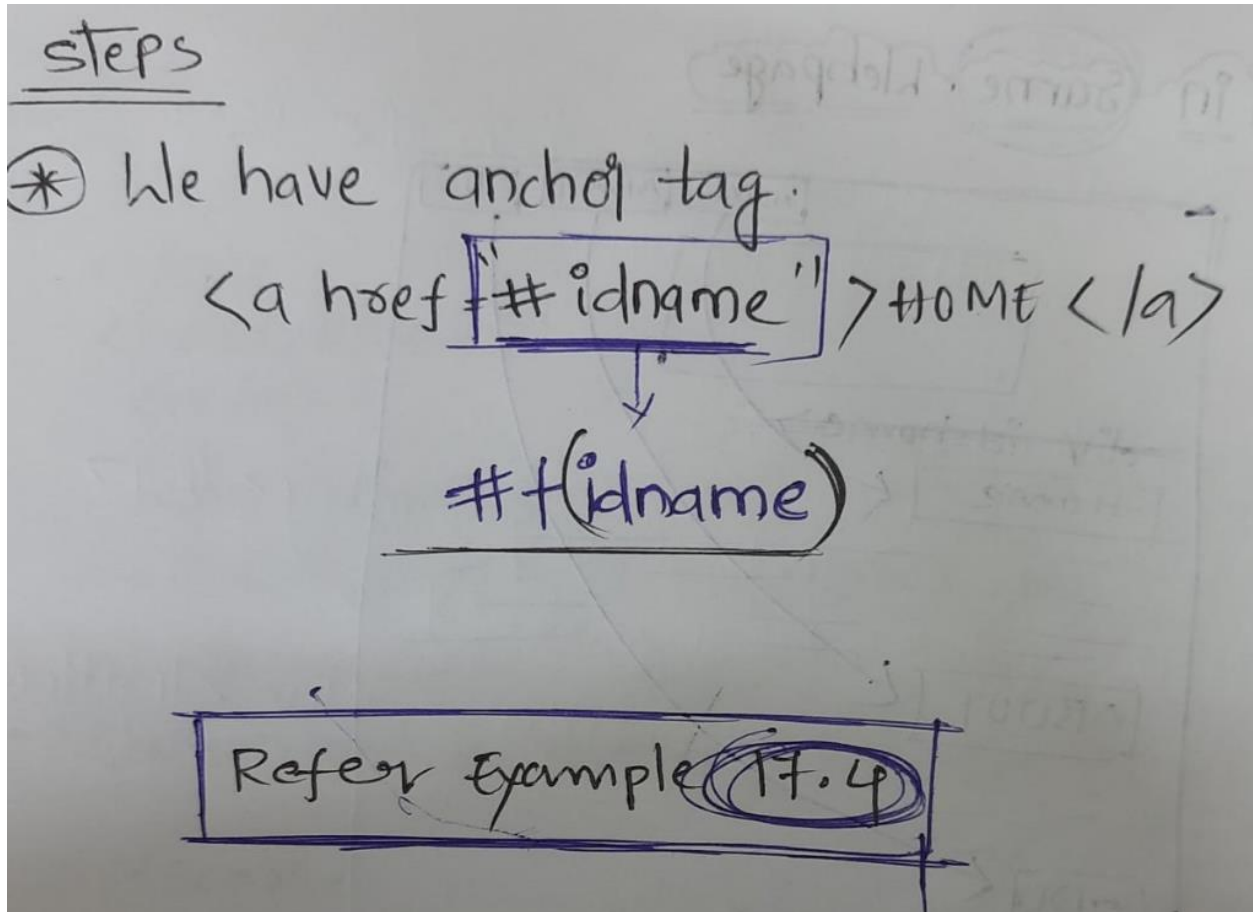 steps
* We have anchor tag.
<a href="#idname">HOME</a>
#+(idname)
Refer Example 17.4